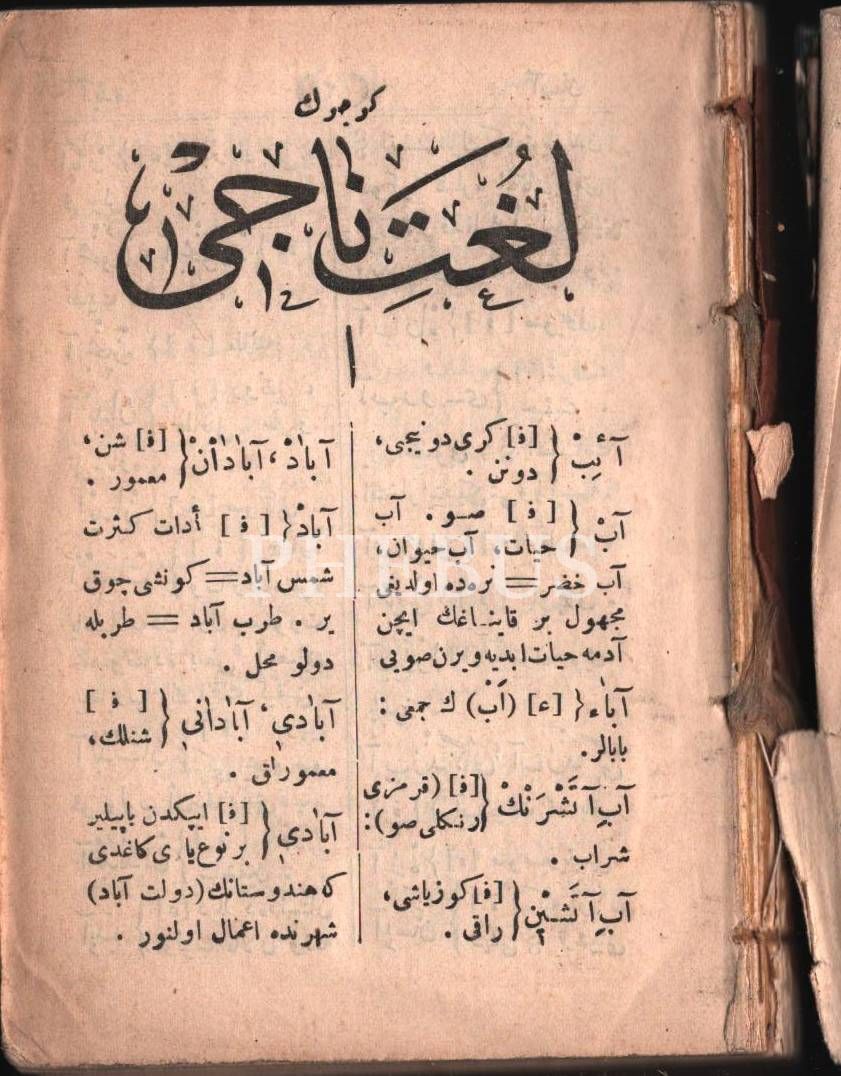 كوجوك
لُغَتِ نَاجِى
ا
آءِبْ } [ف] كرى دونيجى،
دونن .
آبْ } [ف] صو . آب
حيات، آب حيوان،
آب خضر = نرەدە اولديغى
مجهول بر قايناغك ايچن
آدمه حيات ابديه ويرن صويى
آباء } [ع] (اَبْ) ك جمعى :
بابالر.
آبِ آتَشْرَنْكْ } [ف] (قرمزى
رنكلى صو) :
شراب .
آبِ آتَشينْ } [ف] كوز ياشى،
راقى .
آبادْ، آبادانْ } [ف] شن،
معمور .
آبادْ } [ف] أدات كثرت
شمس آباد = كونشى چوق
ير . طرب آباد = طربله
دولو محل .
آبادى، آبادانى } [ف]
شنلك،
معمورلق .
آبادى } [ف] ايپكدن ياپيلير
بر نوع ياى كاغدى
كه هندوستانك (دولت آباد)
شهرنده اعمال اولنور .
PHEBUS